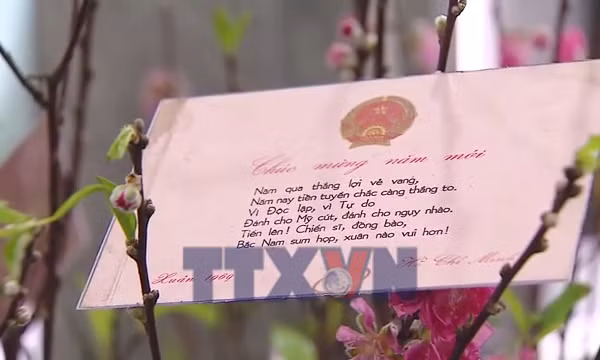 Chúc mừng năm mới
Năm qua thắng lợi vẻ vang,
Năm nay tiền tuyến chắc càng thắng to.
Vì Độc lập, vì Tự do
Đánh cho Mỹ cút, đánh cho ngụy nhào.
Tiến lên! Chiến sĩ, đồng bào,
Bắc Nam sum họp, xuân nào vui hơn!
Xuân 1969
Hồ Chí Minh
TTXVN